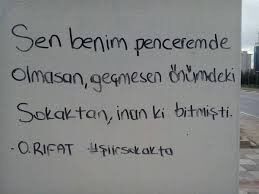 Sen benim penceremde
olmasan, geçmesen önümdeki
Sokaktan, inan ki bitmişti.
- O.RIFAT #şiirsokakta